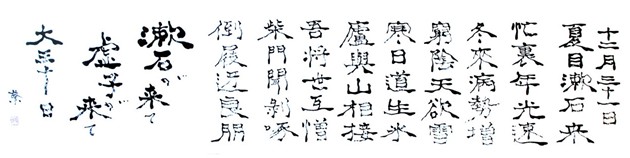 十二月三十一日
夏目漱石来
忙裏年光速
冬來病勢増
窮陰天欲雪
寒日道生氷
廬與山相接
吾將世互憎
柴門聞剥啄
倒屐迎良朋
漱石が来て
虚子が来て
大三十日